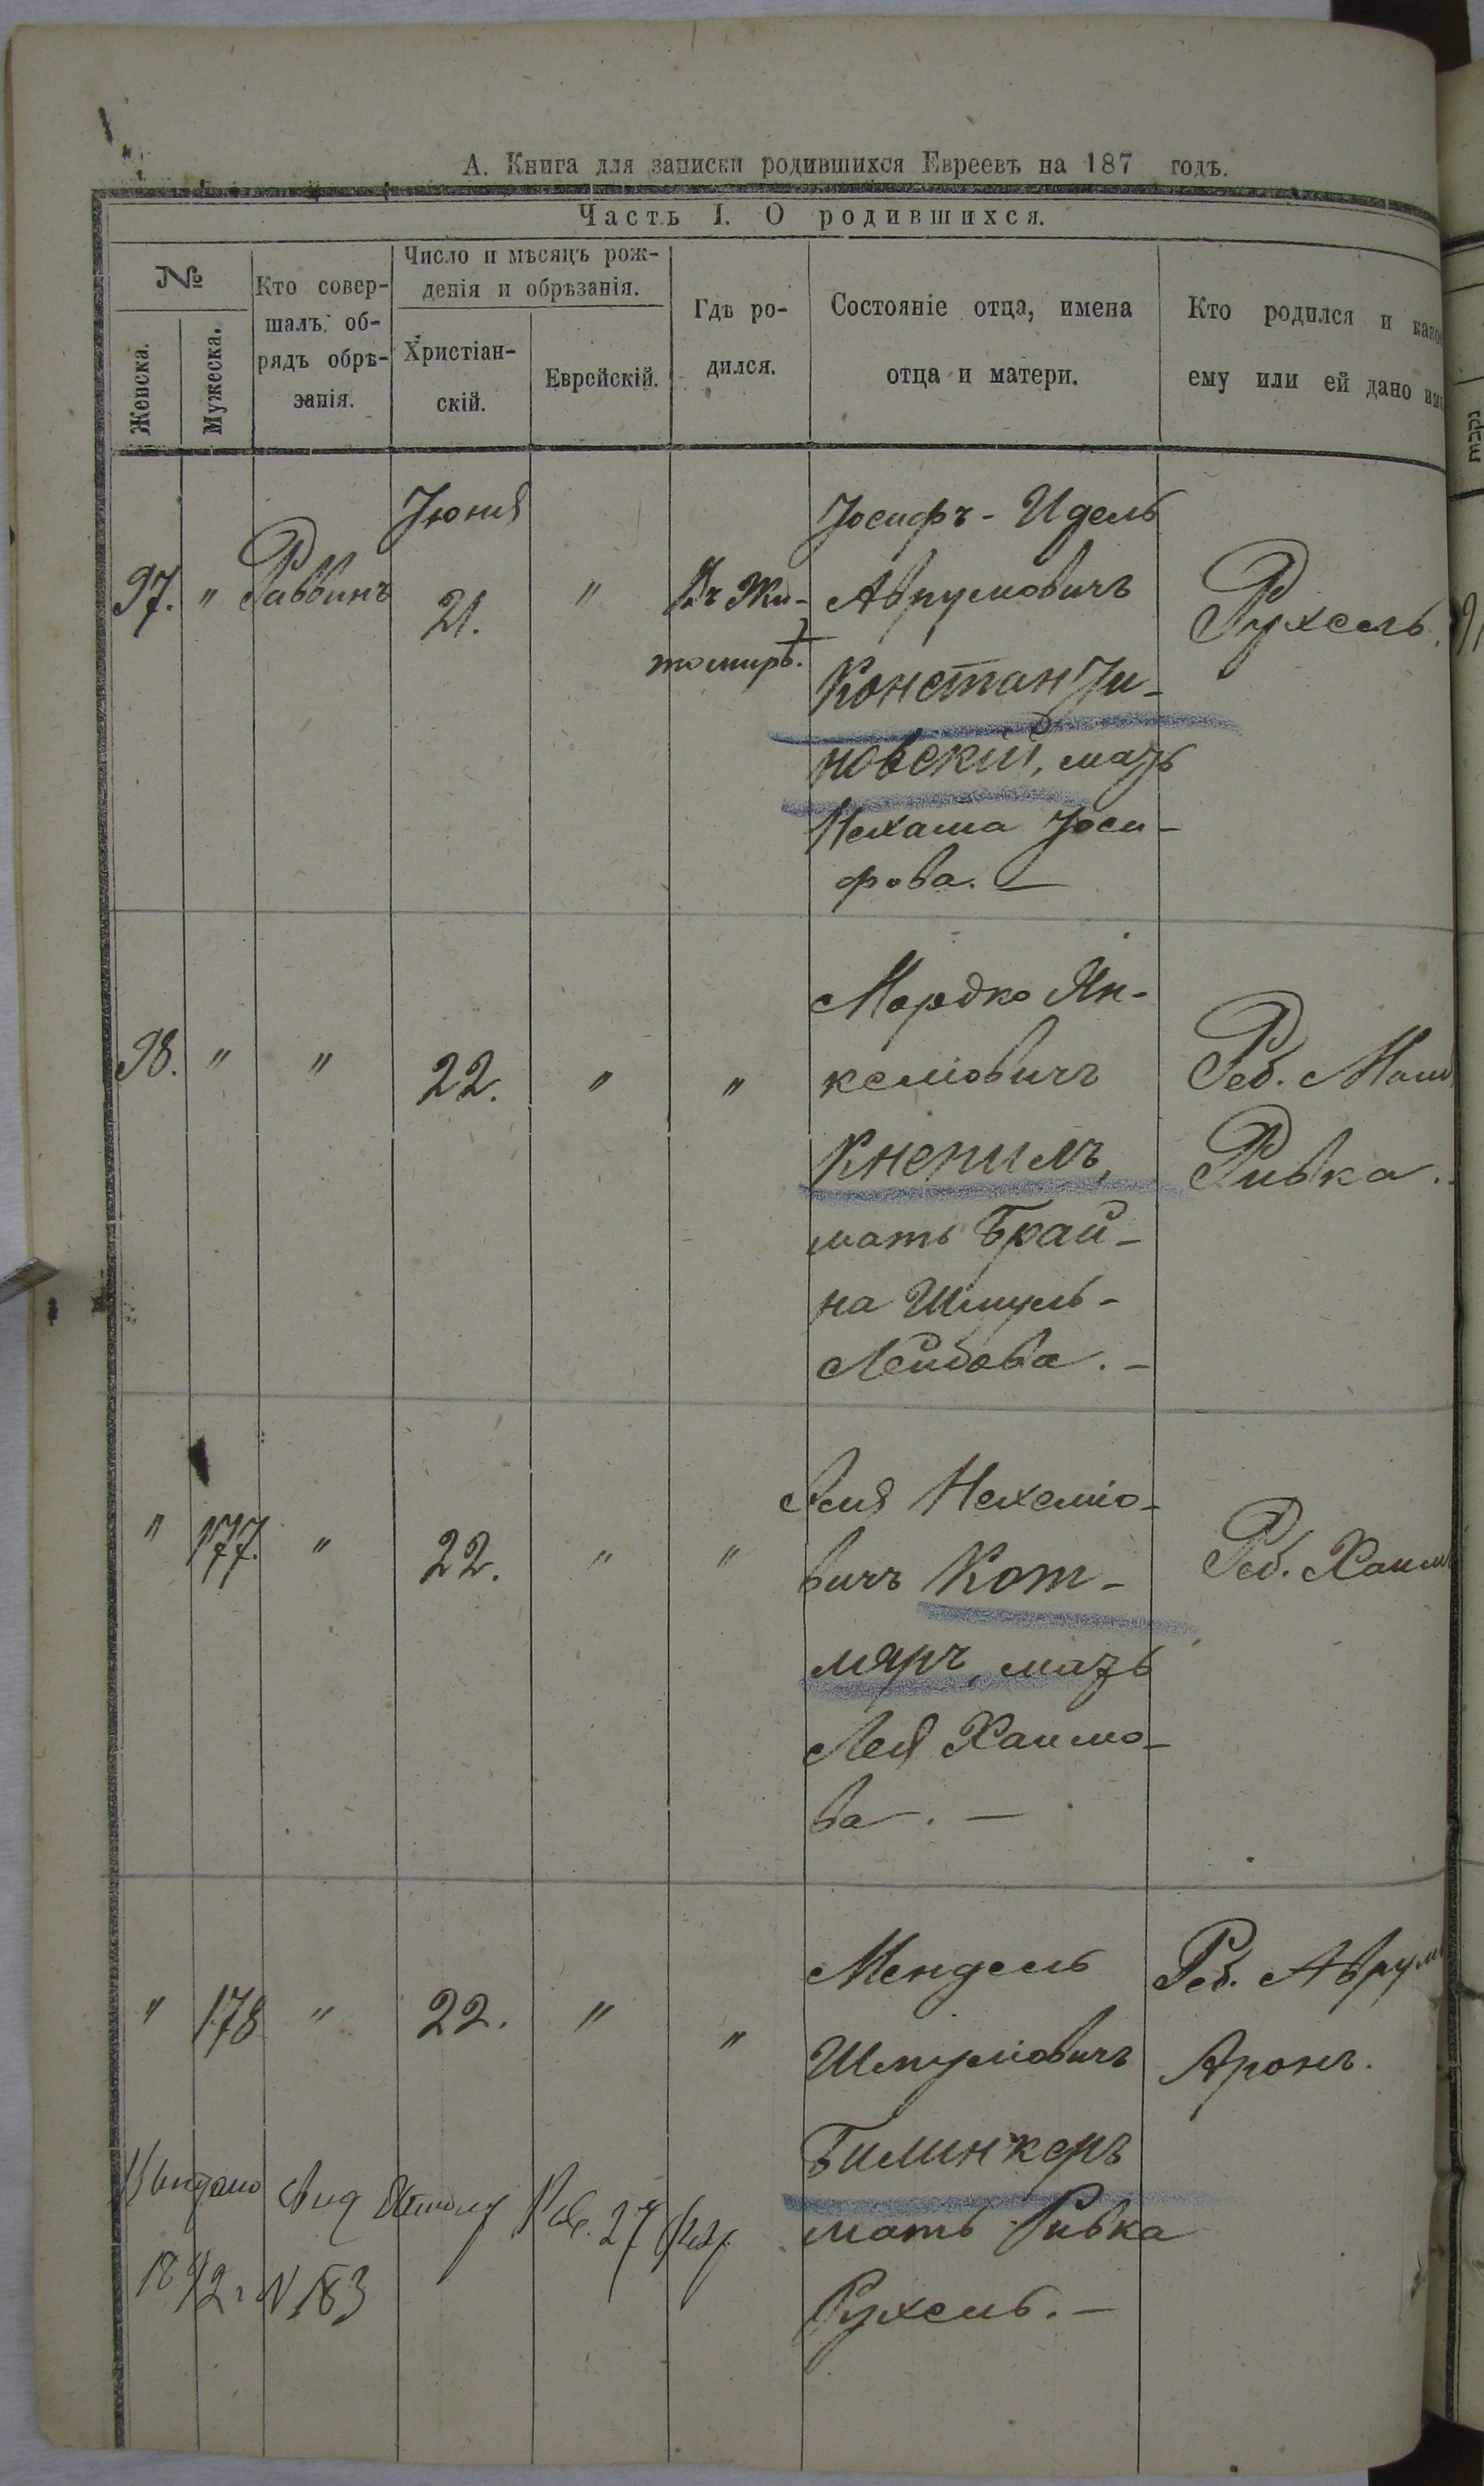 А. Книга для записки родившихся Евреевъ на 187 годъ.
Часть I. О родившихся.
№
Женска.
Мужеска.
Кто совер-
шалъ об-
рядъ обрѣ-
занія.
Число и мѣсяцъ рож-
денія и обрѣзанія.
Христіан-
скій.
Еврейскій.
Гдѣ ро-
дился.
Состояніе отца, имена
отца и матери.
Кто родился и какое
ему или ей дано имя
נקבות
97. " Раввинъ
Іюня
21.
"
Въ Жи-
томирѣ.
Іосифъ-Идель
Аврумовичъ
Константи-
новскій, мать
Нехама Іоси-
фова. —
Рухель.
98. " " 22. " "
Мордко Ян-
келіовичъ
Кнепилъ,
мать Брай-
на Шмуль-
Лейбова. —
Реб.
Ривка.
" 177. " 22. " "
Нехеміо-
вичъ Кот-
ляръ, мать
Лея Хаимо-
ва. —
Реб. Хаим
" 178 " 22. " "
Мендель
Шмуліовичъ
Билинкеръ
мать Ривка
Рухель. —
Реб. Аврум
Аронъ.
Выдано 27
18 2 N 183